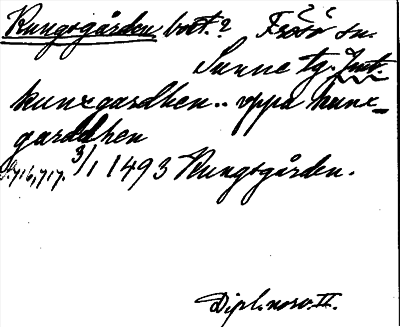 Kungsgården bort.? Frösö sn.
Sunne tg. Jmtl.
kunxgardhen.. oppa kunx=
garddhen
s. 716, 717. 3/1 1493 Kungsgården.
Dipl. norv. II.